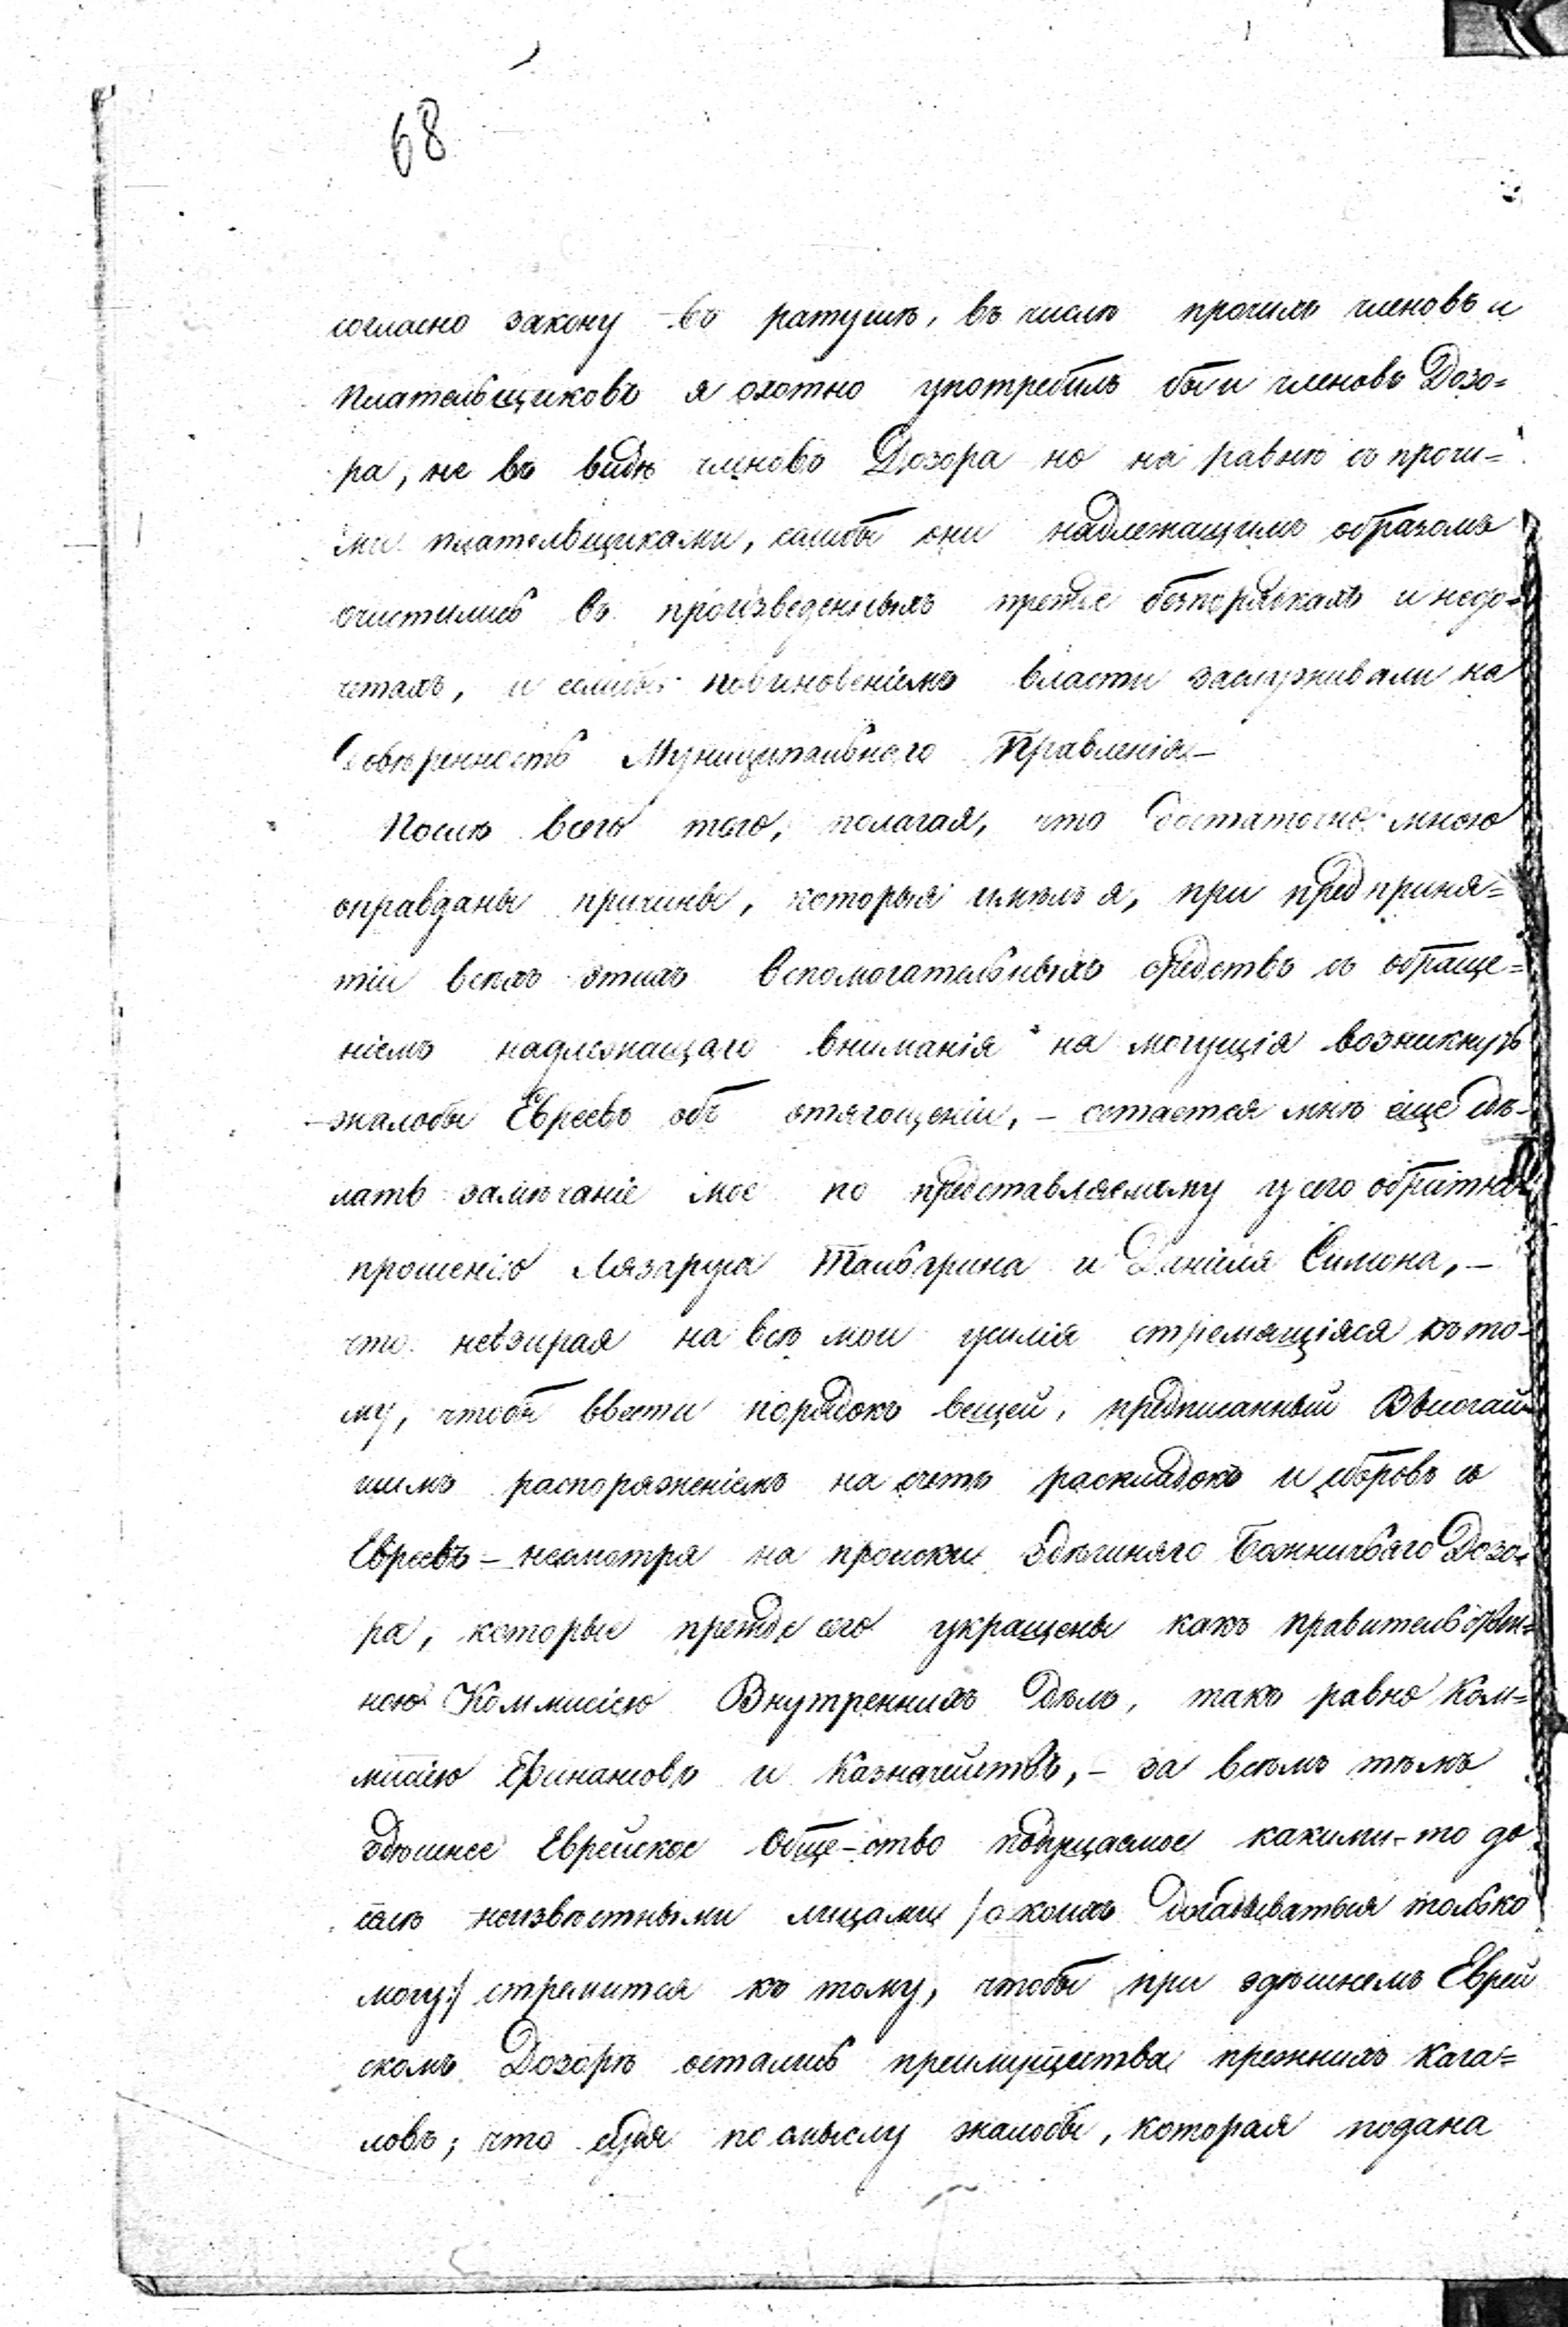 68
согласно закону въ ратушѣ, въ числѣ прочихъ членовъ и
плательщиковъ я охотно употребилъ бы и членовъ Дозо=
ра, не въ видѣ членовъ Дозора но на равнѣ съ прочи=
ми плательщиками, еслибы они надлежащимъ образомъ
очистились въ произведенныхъ прежде безпорядкахъ и недо=
четахъ, и еслибы повиновеніемъ власти заслуживали на
довѣренность Муниципальнаго Правленія —
Послѣ всего того, полагая, что достаточно мною
оправданы причины, которыя имѣлъ я, при предприня=
тіи всѣхъ этихъ вспомогательныхъ средствъ съ обраще=
ніемъ надлежащаго вниманія на могущія возникнуть
жалобы Евреевъ объ отягощеніи, — остается мнѣ еще сдѣ-
лать замѣчаніе мое по представляемому у сего обратно
прошенію Лязаруса Тальгрина и Даніеля Симона, —
что невзирая на всѣ мои усилія стремящіяся къ то-
му, чтобы ввести порядокъ вещей, предписанный Высочай-
шимъ распоряженіемъ на счетъ раскладокъ и сборовъ съ
Евреевъ — несмотря на происки здѣшняго Божничьяго Дозо-
ра, которые прежде сего укращены какъ Правительствен=
ною Коммисіею Внутреннихъ Дѣлъ, такъ равно Ком=
мисіею Финансовъ и Казначейства, — за всѣмъ тѣмъ
здѣшнее Еврейское Обще-ство подущаемое какими-то до
селѣ неизвѣстными лицами /о коихъ догадываться только
могу:/ стремится къ тому, чтобы при здѣшнемъ Еврей
скомъ Дозорѣ остались преимущества прежнихъ Кага=
ловъ; что судя по смыслу жалобы, которая подана